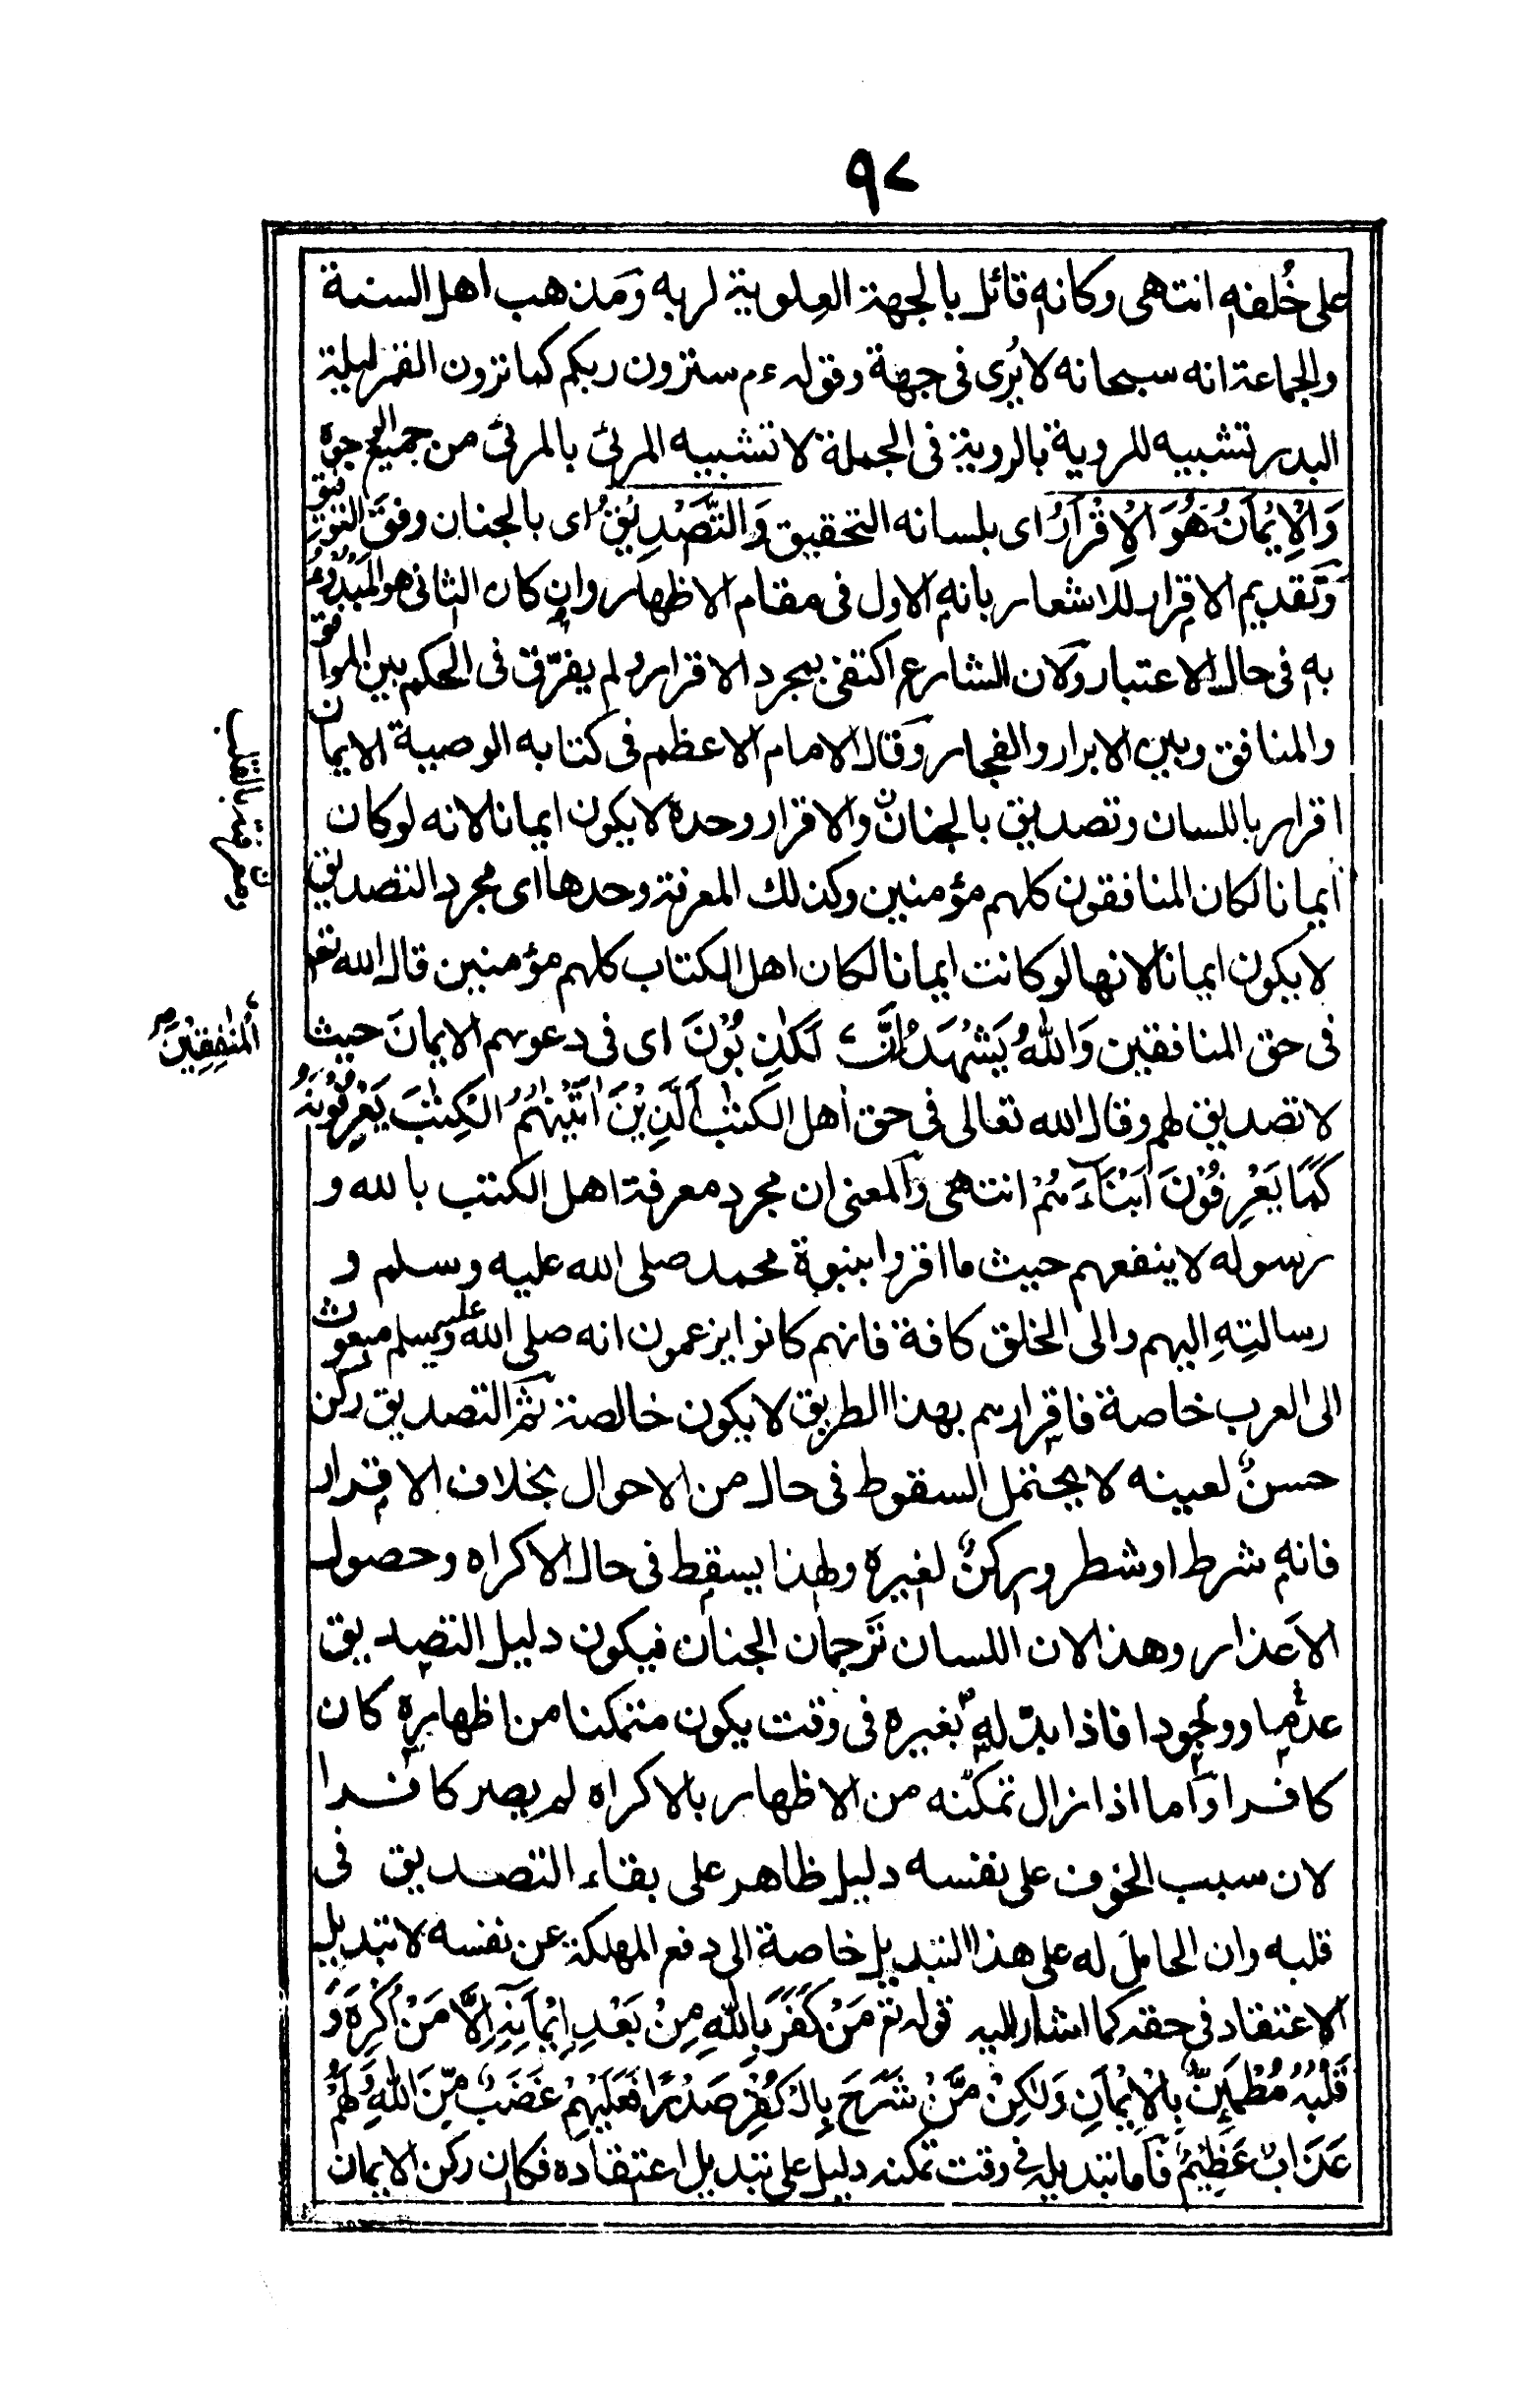 ٩٧
على خلفه انتهى وكانه قائل بالجهة العلوية لربه ومذهب اهل السنة
والجماعة انه سبحانه لا يُرى فى جهة وقوله ءم سترون ربكم كما ترون القمر ليلة
البدر تشبيه للروية بالروية فى الجملة لا تشبيه المرئى بالمرئى من جميع الوجوه
وَالْاِيْمَانُ هُوَ الْاِقْرَارُ اى بلسانه التحقيق وَالتَّصْدِيْقُ اى بالجنان وفق التوفيق
وتقديم الاقرار للاشعار بانه الاول فى مقام الاظهار وان كان الثانى هو المبدوء
به فى حال الاعتبار ولان الشارع اكتفى بمجرد الاقرار ولم يفرّق فى الحكم بين الموافق
والمنافق وبين الابرار والفجار وقال الامام الاعظم فى كتابه الوصية الايمان
اقرار باللسان وتصديق بالجنان والاقرار وحده لا يكون ايمانا لانه لو كان
ومعرفة بالقلب
ايمانا لكان المنافقون كلهم مؤمنين وكذلك المعرفة وحدها اى مجرد التصديق
لا يكون ايمانا لانها لو كانت ايمانا لكان اهل الكتاب كلهم مؤمنين قال الله تعم
فى حق المنافقين وَاللهُ يَشْهَدُ اِنَّ لَكٰذِبُوْنَ اى فى دعوىهم الايمانَ حيث
الْمُنٰفِقِيْنَ صح
لا تصديق لهم وقال الله تعالى فى حق اهل الكتٰب اَلَّذِيْنَ اٰتَيْنٰهُمُ الْكِتٰبَ يَعْرِفُوْنَهُ
كَمَا يَعْرِفُوْنَ اَبْنَآءَهُمْ انتهى والمعنى ان مجرد معرفة اهل الكتب بالله و
رسوله لا ينفعهم حيث ما اقروا بنبوة محمد صلى الله عليه وسلم و
رسالتِهِ اليهم والى الخلق كافة فانهم كانوا يزعمون انه صلى الله عليه وسلم مبعوث
الى العرب خاصة فاقرارهم بهذا الطريق لا يكون خالصة ثم التصديق ركن
حسنٌ لعينه لا يحتمل السقوط فى حال من الاحوال بخلاف الاقرار
فانه شرط او شطر وركنٌ لغيره ولهذا يسقط فى حال الاكراه وحصول
الاعذار وهذا لان اللسان تَرجمان الجنان فيكون دليل التصديق
عدما ووجودا فاذا بدّله بغيره فى وقت يكون متمكنا من اظهاره كان
كافرا واما اذا زال تمكّنه من الاظهار بالاكراه لم يصر كافرا
لان سبب الخوف على نفسه دليل ظاهر على بقاء التصديق فى
قلبه وان الحامل له على هذا التبديل خاصة الى دفع المهلكة عن نفسه لا تبديل
الاعتقاد فى حقه كما اشار اليه قوله تعم مَنْ كَفَرَ بِاللهِ مِنْ بَعْدِ اِيْمَانِهٖ اِلَّا مَنْ اُكْرِهَ وَ
قَلْبُهُ مُطْمَئِنٌّ بِالْاِيْمَانِ وَلٰكِنْ مَّنْ شَرَحَ بِالْكُفْرِ صَدْرًا فَعَلَيْهِمْ غَضَبٌ مِّنَ اللهِ وَلَهُمْ
عَذَابٌ عَظِيْمٌ فاما تبديله فى وقت تمكنه دليل على تبديل اعتقاده فكان ركن الايمان